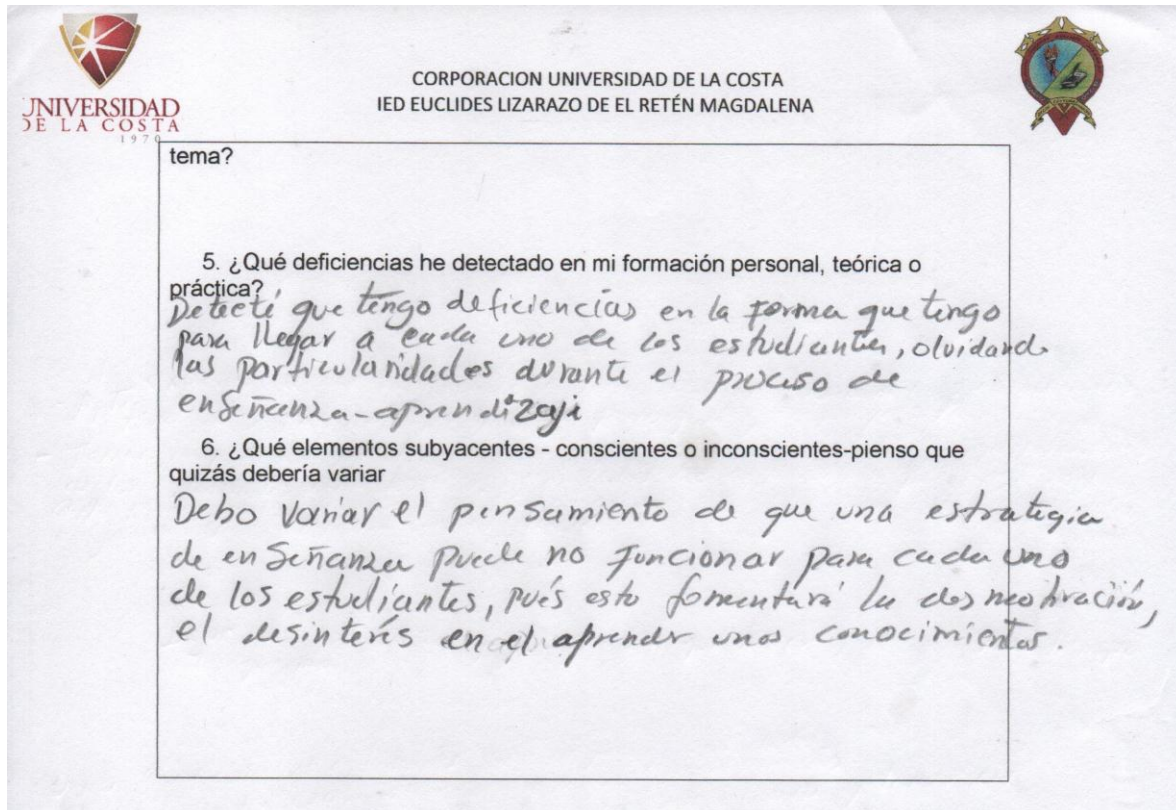 UNIVERSIDAD
DE LA COSTA
1970
CORPORACION UNIVERSIDAD DE LA COSTA
IED EUCLIDES LIZARAZO DE EL RETÉN MAGDALENA
tema?
5. ¿Qué deficiencias he detectado en mi formación personal, teórica o
práctica?
Detecté que tengo deficiencias en la forma que tengo
para llegar a cada uno de los estudiantes, olvidando
las particularidades durante el proceso de
enseñanza-aprendizaje
6. ¿Qué elementos subyacentes - conscientes o inconscientes-pienso que
quizás debería variar
Debo variar el pensamiento de que una estrategia
de enseñanza puede no funcionar para cada uno
de los estudiantes, pués esto fomentará la desmotivación,
el desinterés en el aprender unos conocimientos.